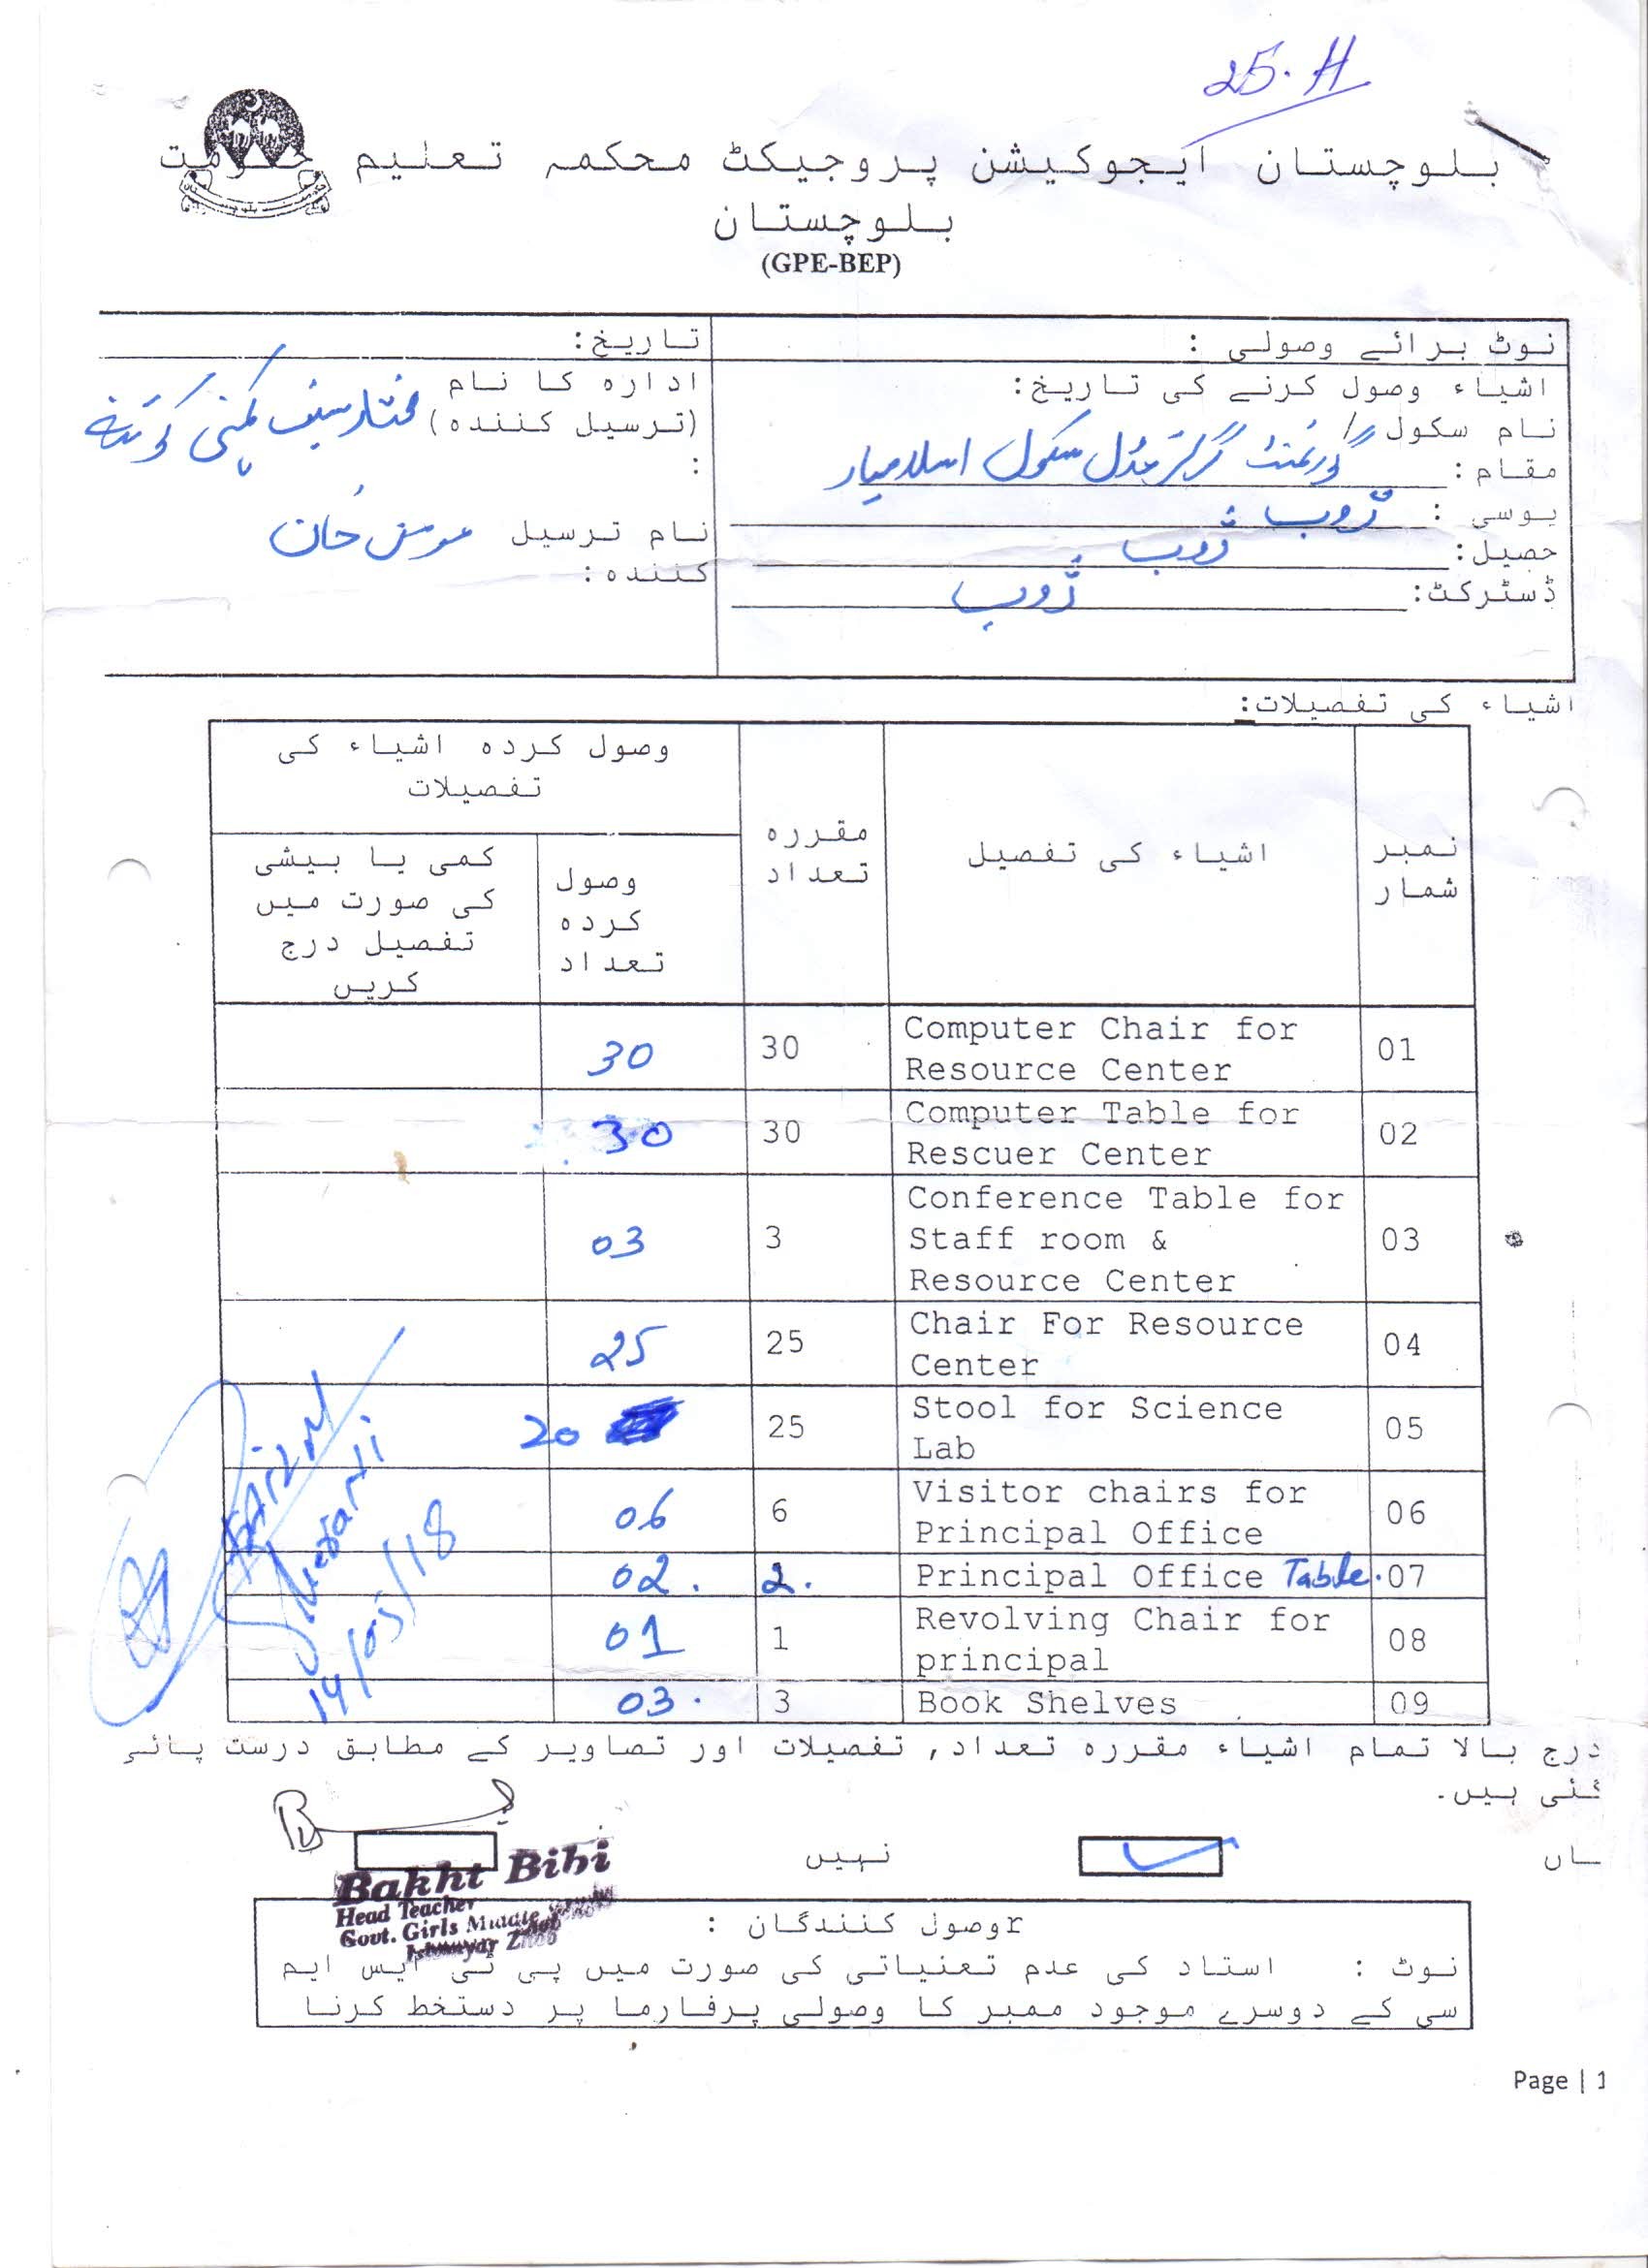 25. H
بلوچستان ایجوکیشن پروجیکٹ محکمہ تعلیم حکومت
بلوچستان
(GPE-BEP)
نوٹ برائے وصولی :
تاریخ:
اشیاء وصول کرنے کی تاریخ:
نام سکول /
مقام : گورنمنٹ گرلز مڈل سکول اسلامیار
یوسی : ژوب
حصیل: ژوب
ڈسٹرکٹ: ژوب
ادارہ کا نام
(ترسیل کنندہ) کمپنی کوئٹہ
:
نام ترسیل خان
کنندہ:
اشیاء کی تفصیلات:
نمبر شمار
اشیاء کی تفصیل
مقررہ تعداد
وصول کردہ اشیاء کی تفصیلات
وصول کردہ تعداد
کمی یا بیشی کی صورت میں تفصیل درج کریں
01 Computer Chair for Resource Center 30 30
02 Computer Table for Rescuer Center 30 30
03 Conference Table for Staff room & Resource Center 3 03
04 Chair For Resource Center 25 25
05 Stool for Science Lab 25 20
06 Visitor chairs for Principal Office 6 06
07 Principal Office Table. 2. 02.
08 Revolving Chair for principal 1 01
09 Book Shelves 3 03.
14/05/18
درج بالا تمام اشیاء مقررہ تعداد, تفصیلات اور تصاویر کے مطابق درست پائی
گئی ہیں۔
ہاں
نہیں
Bakht Bibi
Head Teacher
Govt. Girls Middle
Zhob
rوصول کنندگان :
نوٹ : استاد کی عدم تعنیاتی کی صورت میں پی ٹی ایس ایم
سی کے دوسرے موجود ممبر کا وصولی پرفارما پر دستخط کرنا
Page | 1